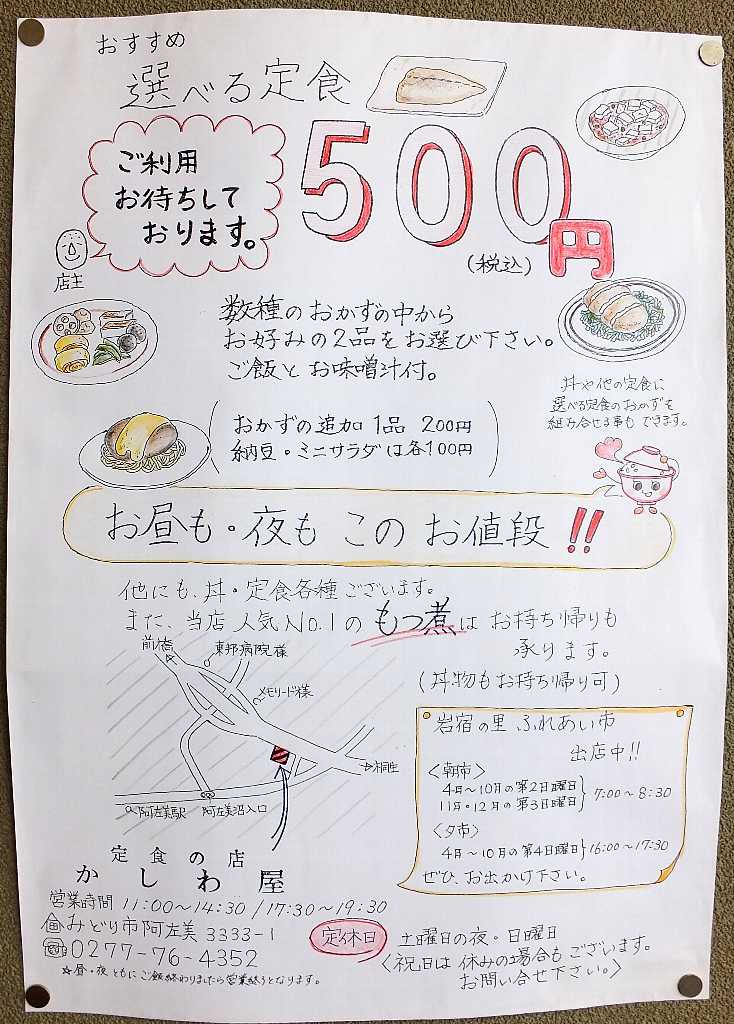 おすすめ
選べる定食
500円
(税込)
ご利用
お待ちして
おります。
店主
数種のおかずの中から
お好みの2品をお選び下さい。
ご飯とお味噌汁付。
丼や他の定食に
選べる定食のおかずを
組み合せる事もできます。
おかずの追加 1品 200円
納豆・ミニサラダは各100円
お昼も・夜も このお値段!!
他にも、丼・定食各種ございます。
また、当店人気No.1の もつ煮は お持ち帰りも
承ります。
(丼物もお持ち帰り可)
前橋
東邦病院様
メモリード様
桐生
阿左美駅
阿左美沼入口
岩宿の里 ふれあい市
出店中!!
<朝市>
4月~10月の第2日曜日
11月・12月の第3日曜日
7:00~8:30
<夕市>
4月~10月の第4日曜日 16:00~17:30
ぜひ、お出かけ下さい。
定食の店
かしわ屋
営業時間 11:00~14:30 / 17:30~19:30
みどり市阿左美 3333-1
0277-76-4352
☆昼・夜ともにご飯終わりましたら営業終了となります。
定休日 土曜日の夜・日曜日
<祝日は休みの場合もございます。
お問い合せ下さい。>